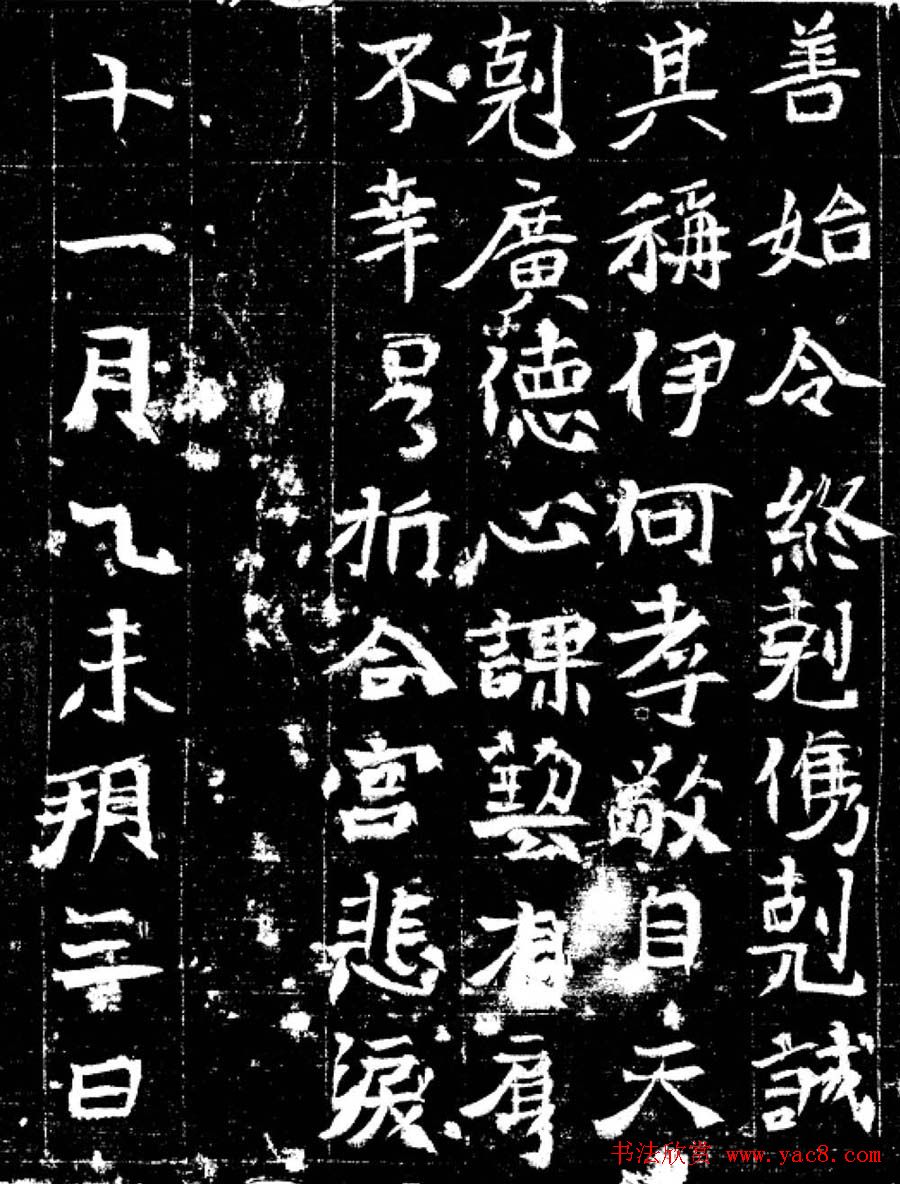 善始令終剋儁剋誠
其稱伊何孝敬自天
剋廣德心課藝有
不幸号折合宮悲淚
十一月乙未朔三日
书法欣赏 www.yac8.com